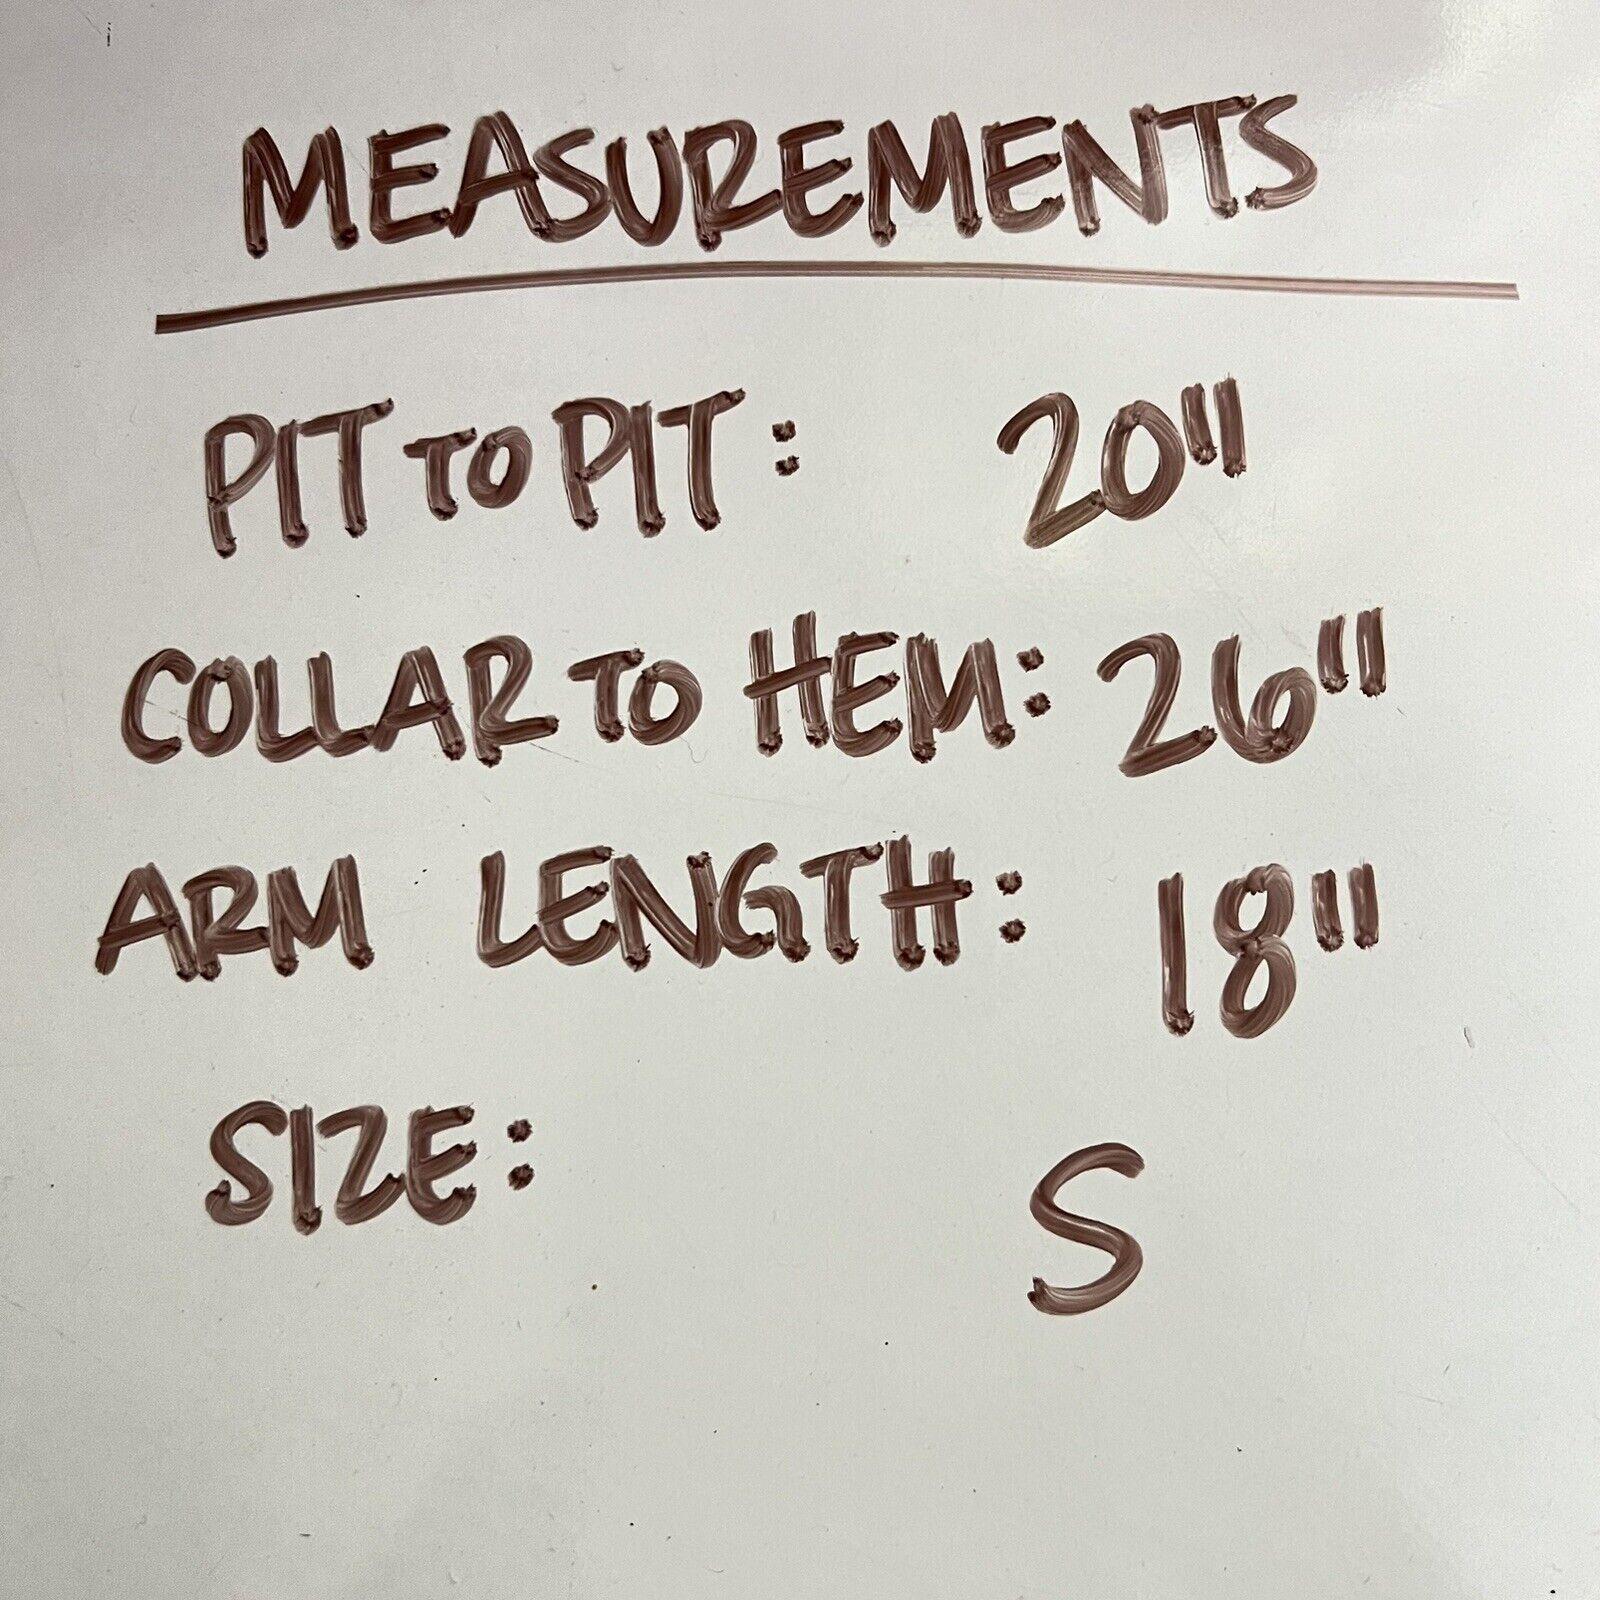 MEASUREMENTS
PIT TO PIT: 20"
COLLAR TO HEM: 26"
ARM LENGTH: 18"
SIZE: S